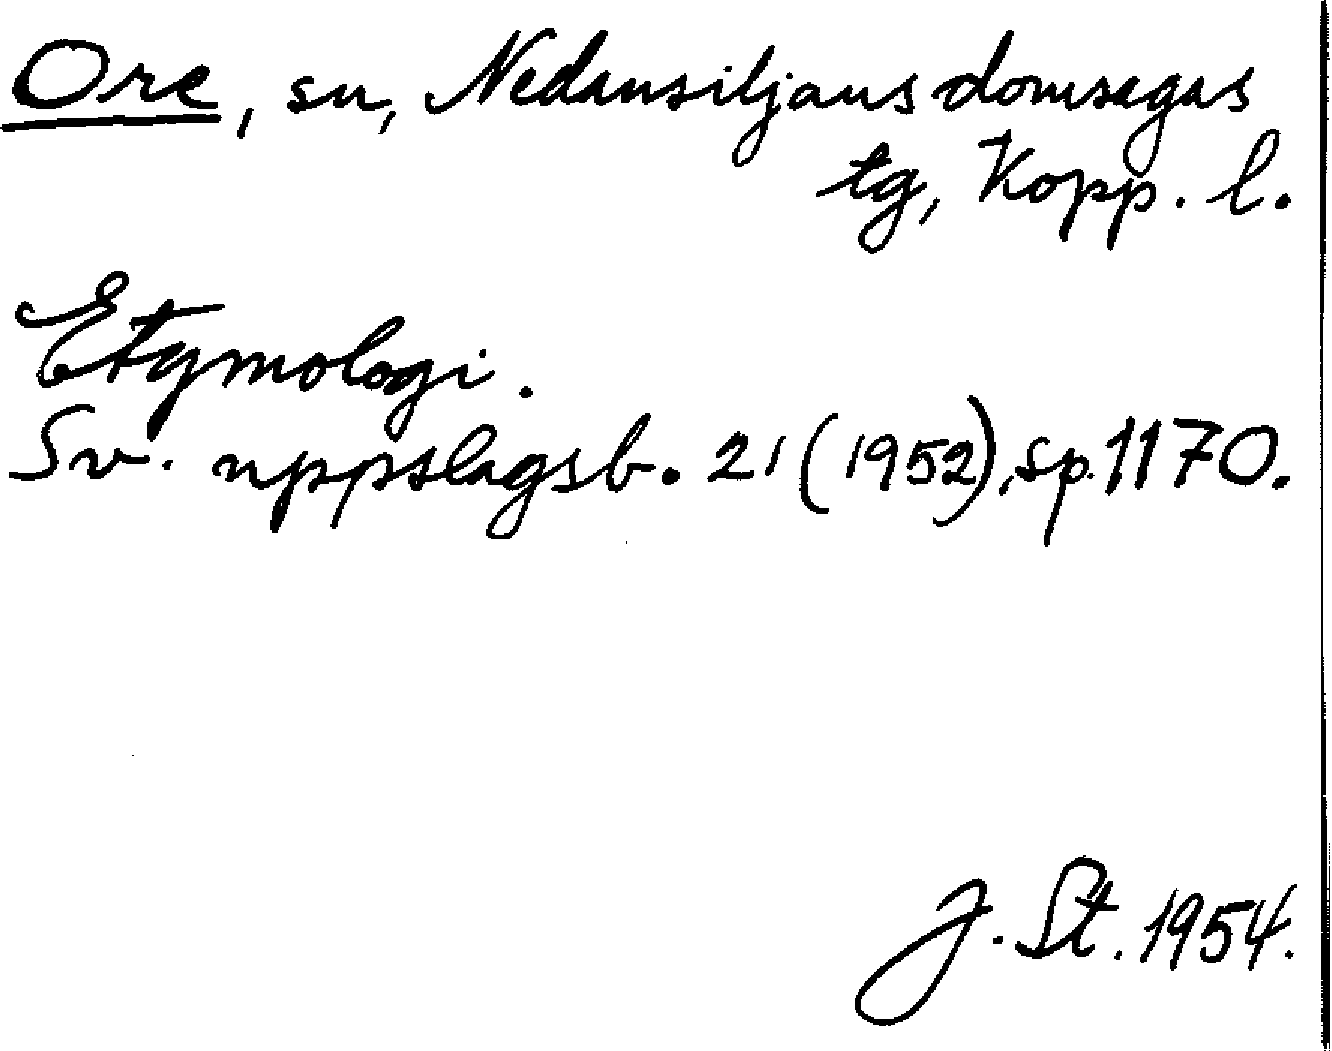 Ore, sn, Nedansiljans domsagas
tg, Kopp. l.
Etymologi.
Sv. uppslagsb. 21 (1952), sp. 1170.
J. St. 1954.